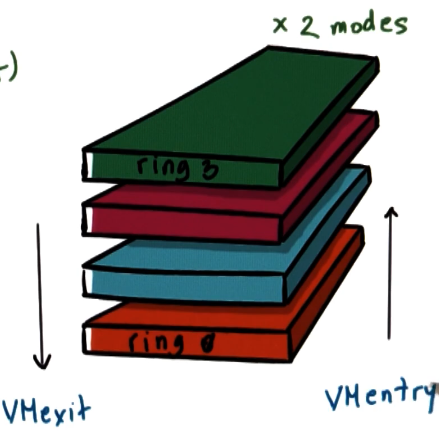 x 2 modes
ring 3
ring 0
VMexit
VMentry